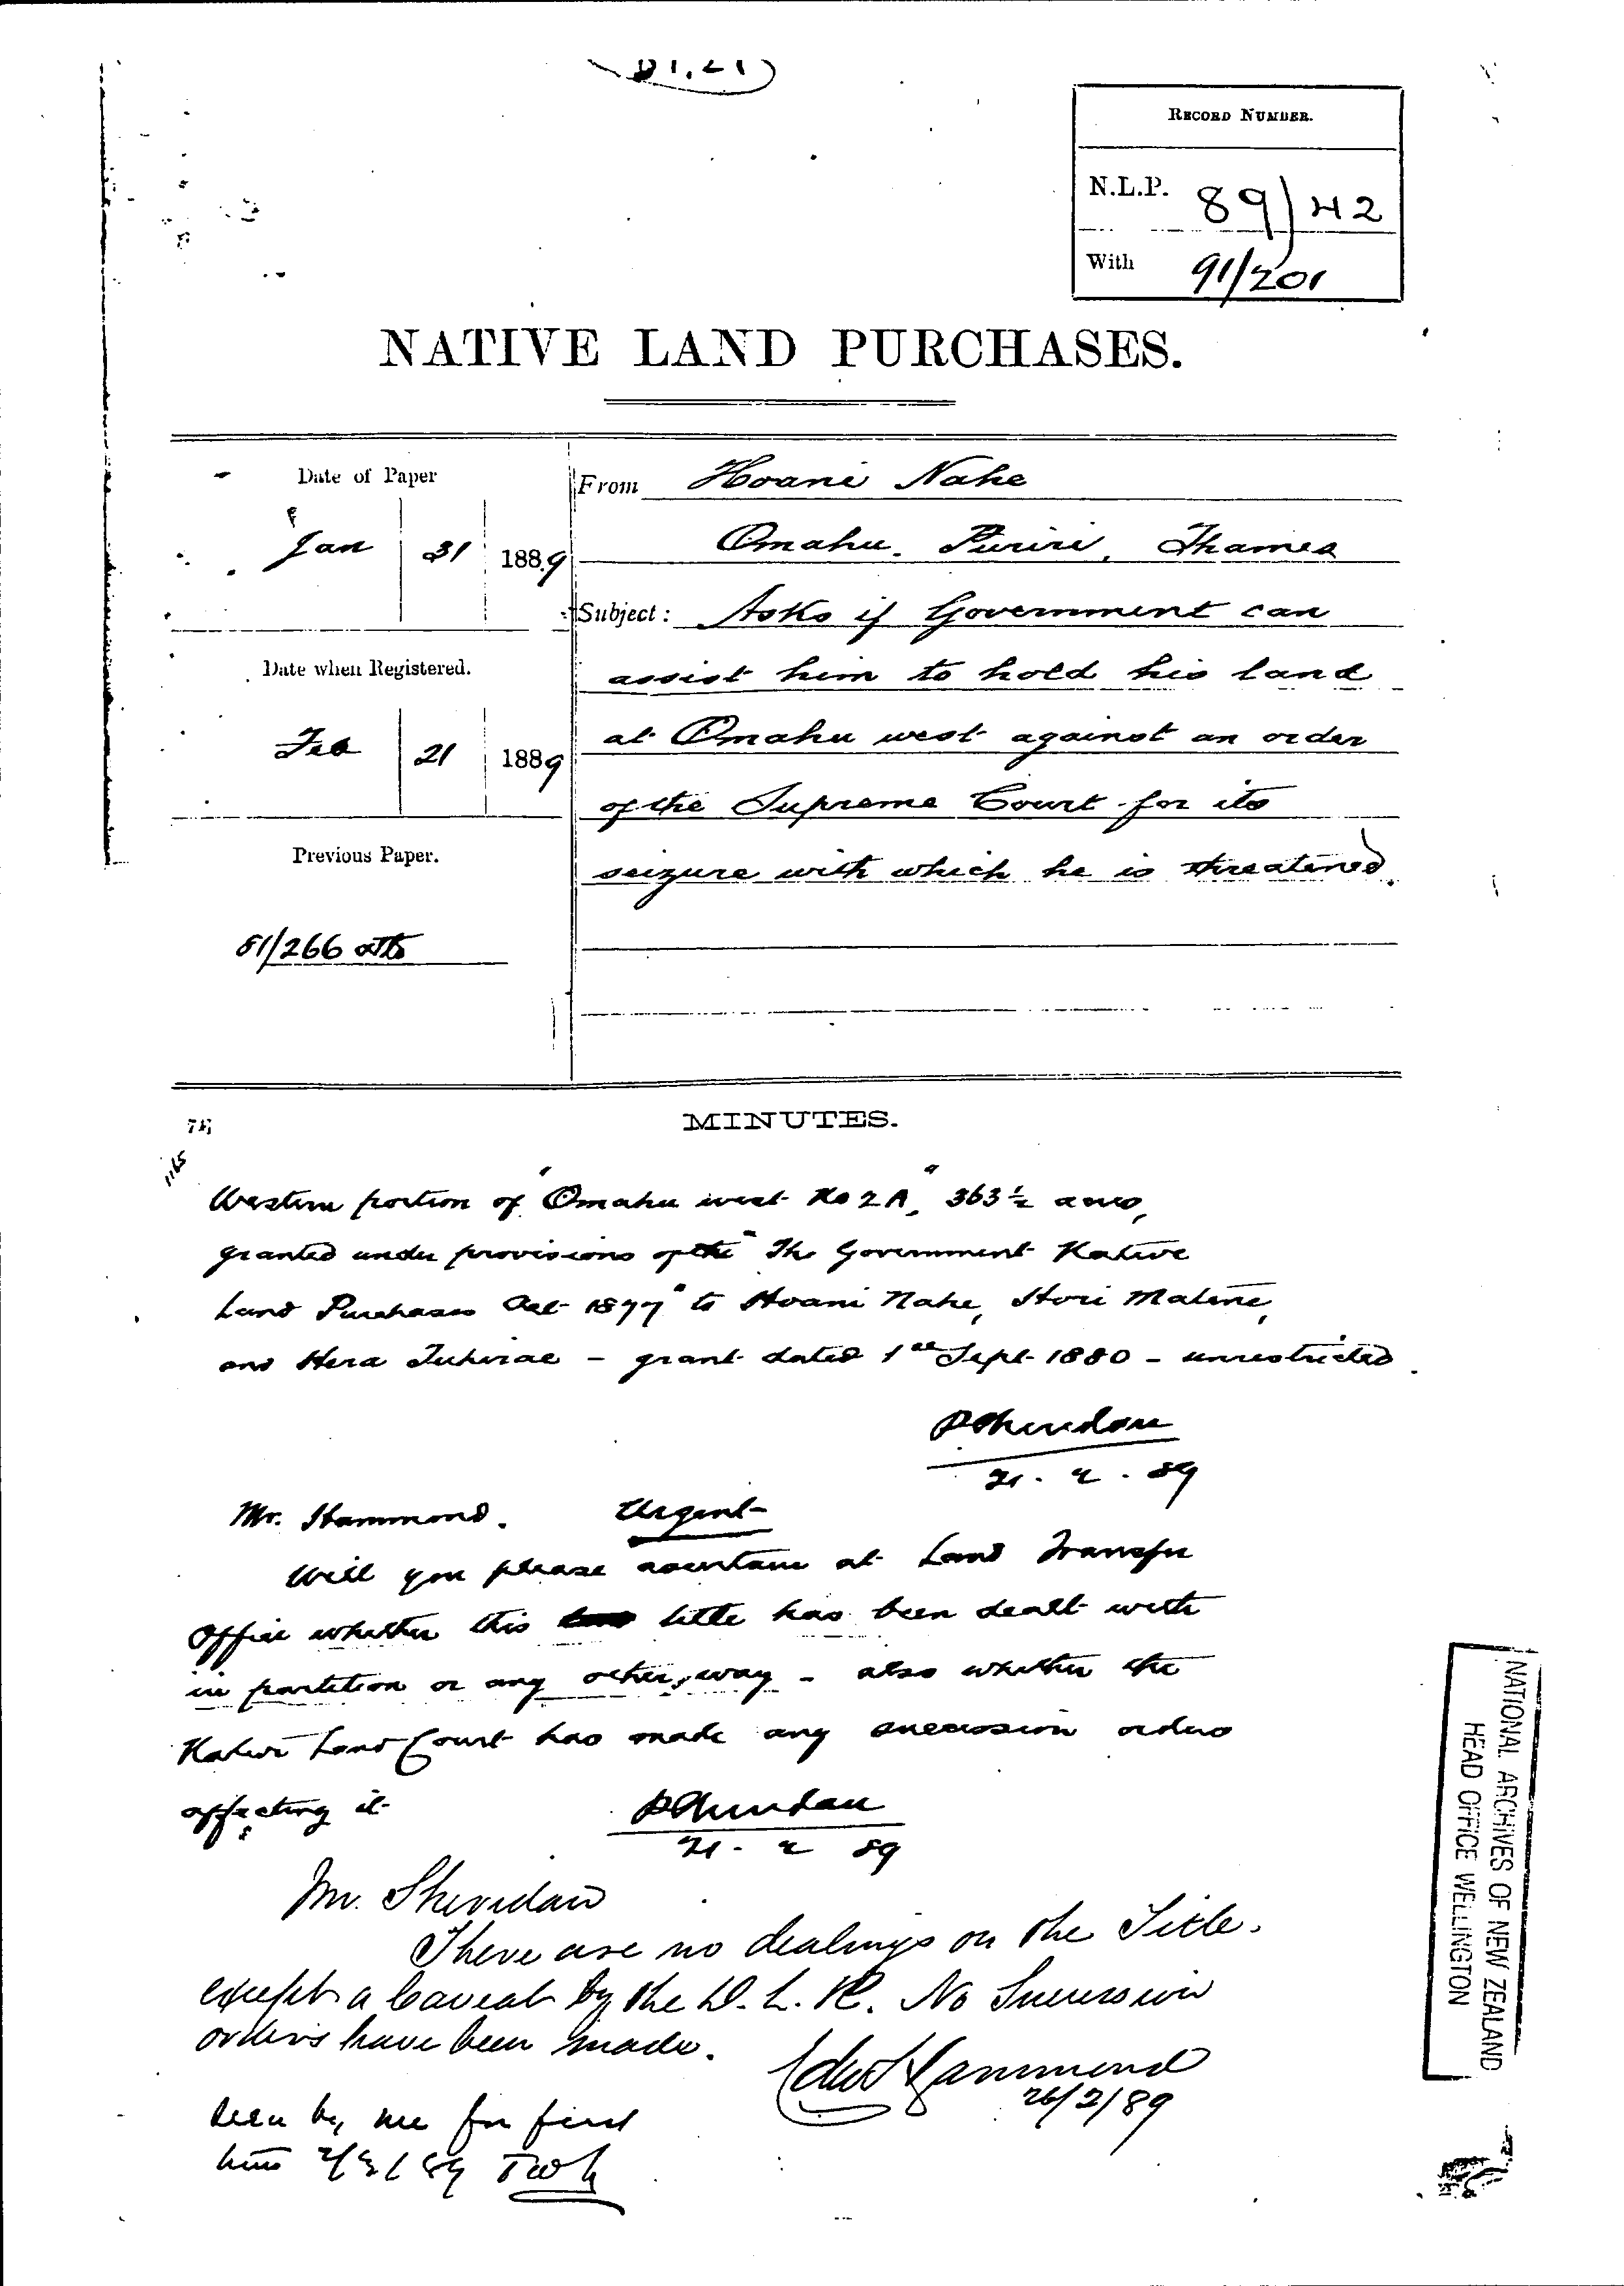 RECORD NUMBER.
N.L.P. 89/42
With 91/201
NATIVE LAND PURCHASES.
Date of Paper
Jan 31 1889
Date when Registered.
Feb 21 1889
Previous Paper.
81/266
From Hoani Nahe
Omahu. Puriri, Thames
Subject: Asks if Government can
assist him to hold his land
at Omahu west against an order
of the Supreme Court for its
seizure with which he is threatened
MINUTES.
1165
Western portion of "Omahu west No 2A", 363½ acres,
granted under provisions of the "The Government Native
Land Purchases Act 1877" to Hoani Nahe, Hori Matene,
and Hera Tuhirae - grant dated 1st Sept 1880 - unrestricted.
P Sheridan
21. 2. 89
Mr. Hammond. Urgent
Will you please ascertain at Land Transfer
Office whether this title has been dealt with
in partition or any other way - also whether the
Native Land Court has made any succession orders
affecting it
P Sheridan
21. 2 89
Mr. Sheridan
There are no dealings on the Title.
except a Caveat by the D. L. R. No Succession
orders have been made.
Edw Hammond
26/2/89
Seen by me for first
time 2/3/89 TWL
NATIONAL ARCHIVES OF NEW ZEALAND
HEAD OFFICE WELLINGTON